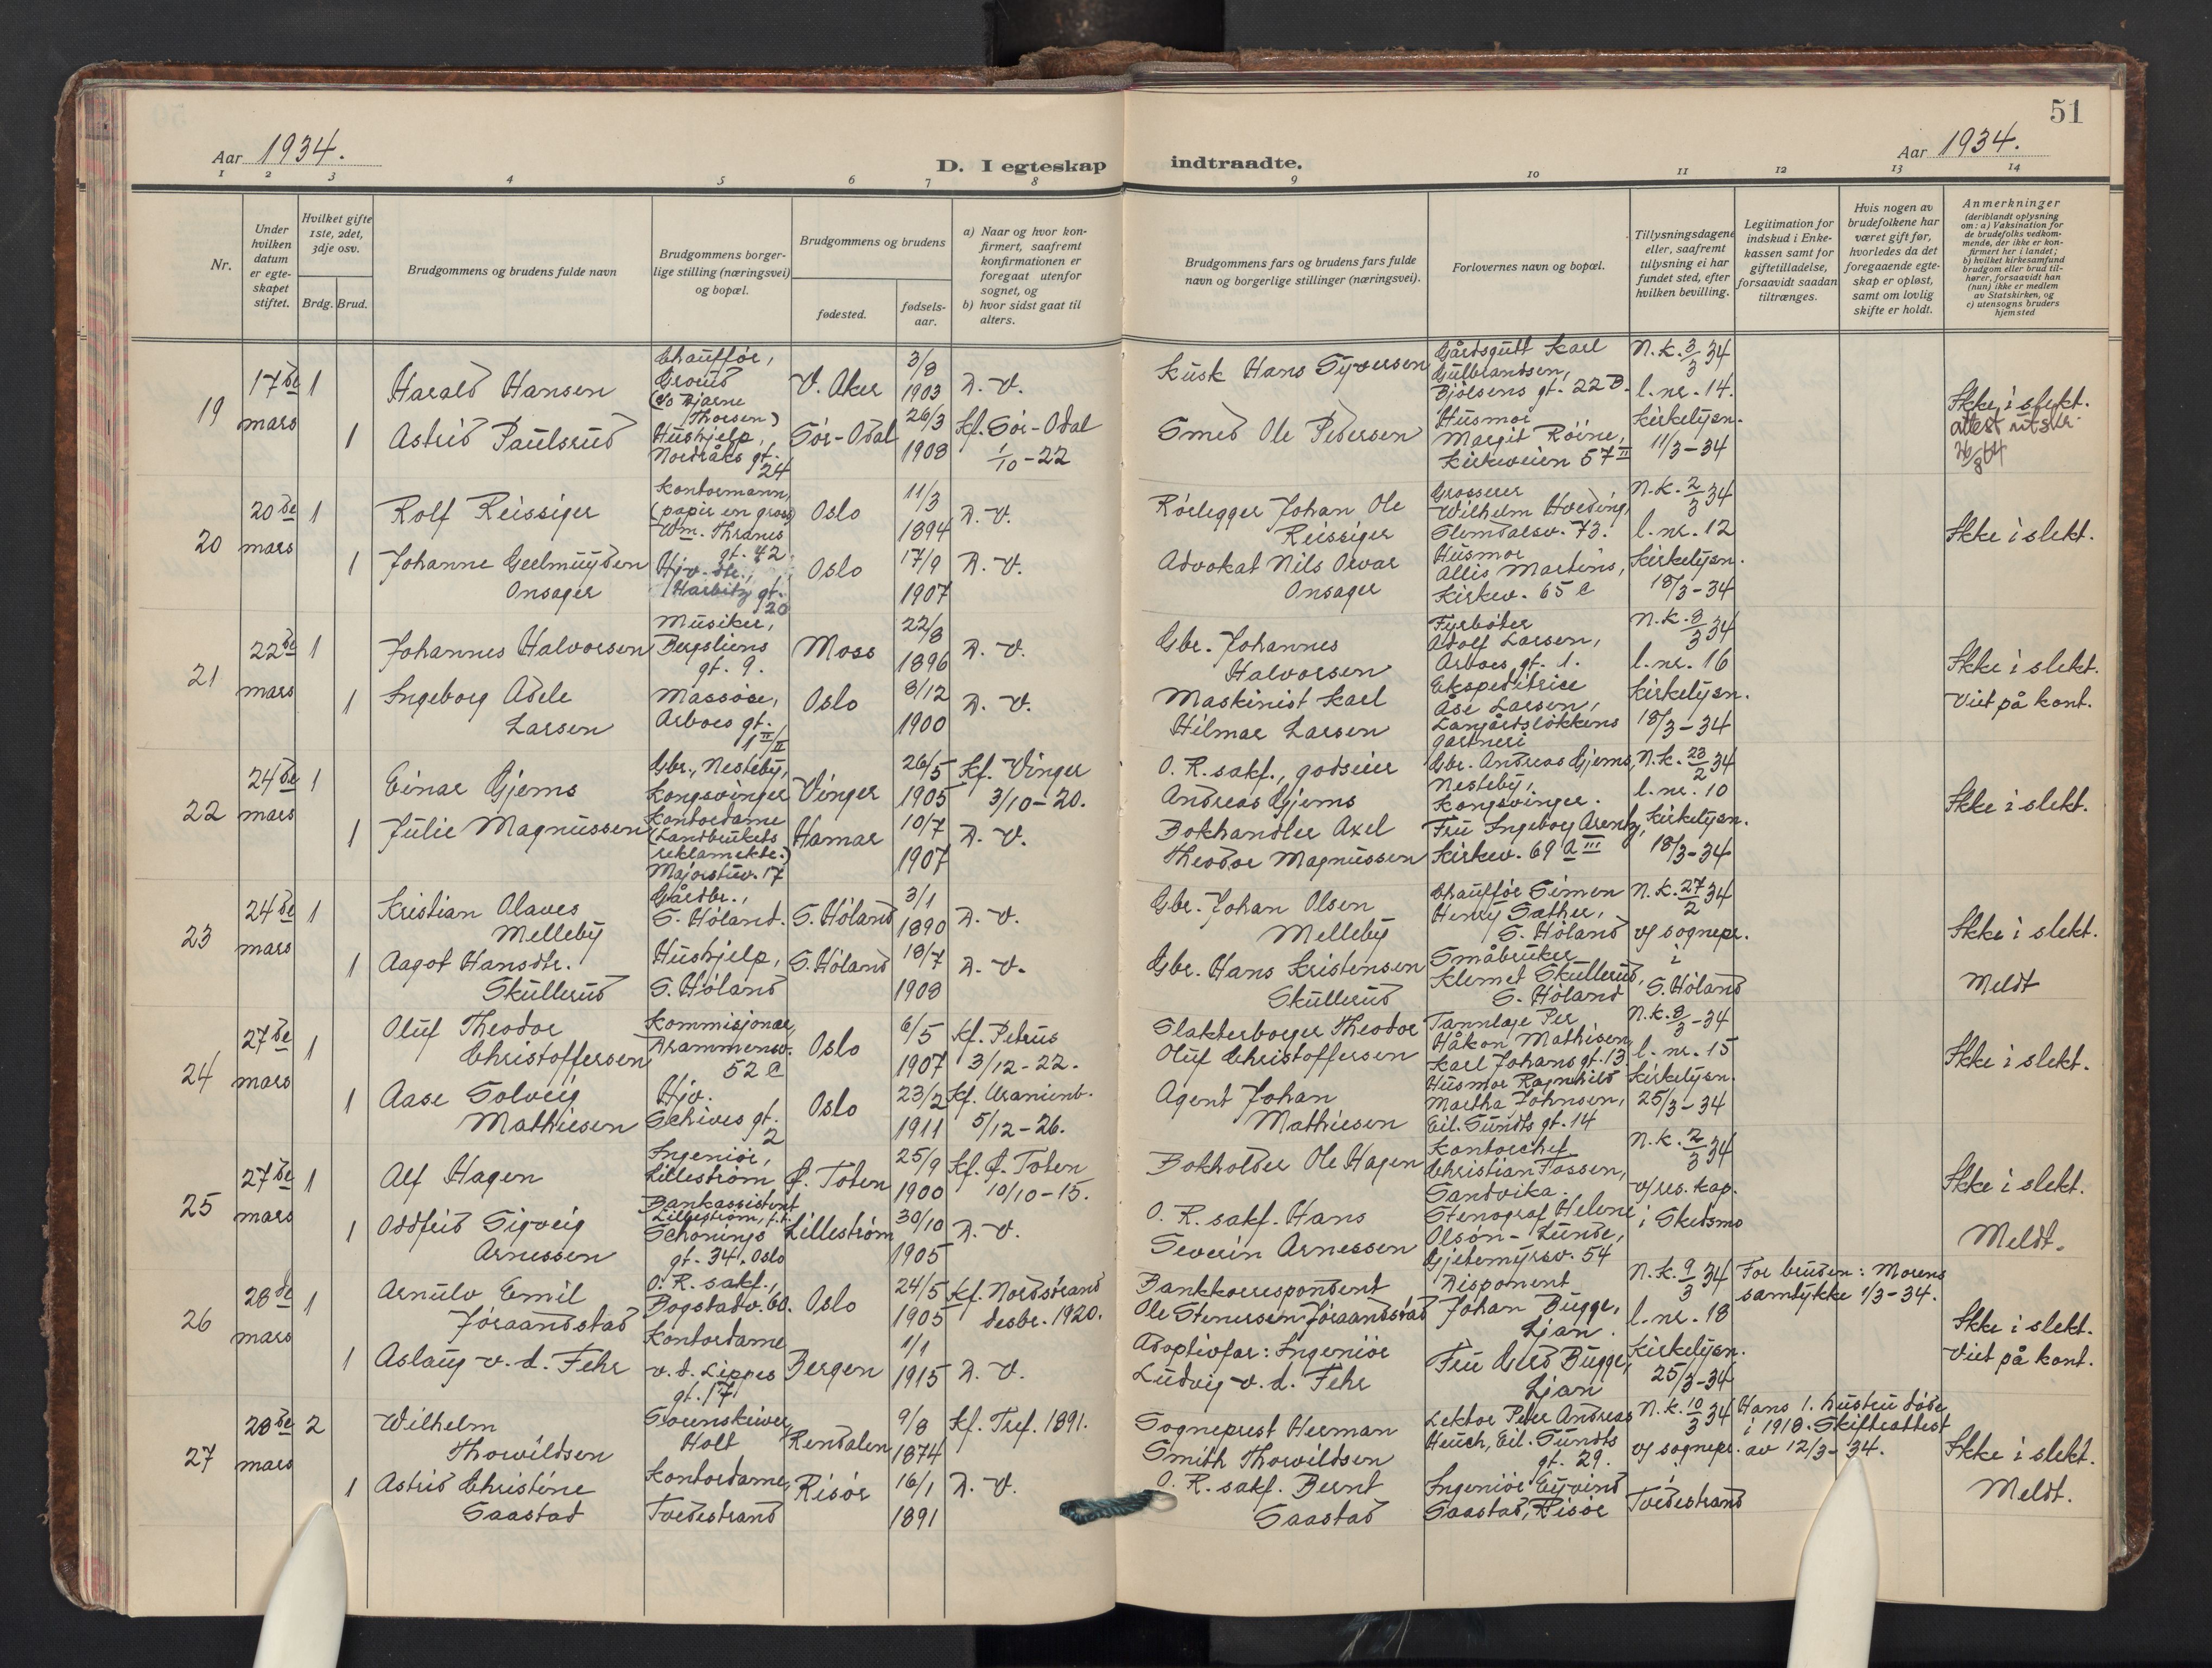 51
Aar 1934.
D. I egteskap indtraadte.
Aar 1934.
1 2 3 4 5 6 7 8 9 10 11 12 13 14
Nr.
Under
hvilken
datum
er egte-
skapet
stiftet.
Hvilket gifte
1ste, 2det,
3dje osv.
Brdg. Brud.
Brudgommens og brudens fulde navn
Brudgommens borger-
lige stilling (næringsvei)
og bopæl.
Brudgommens og brudens
fødested.
fødsels-
aar.
a) Naar og hvor kon-
firmert, saafremt
konfirmationen er
foregaat utenfor
sognet, og
b) hvor sidst gaat til
alters.
Brudgommens fars og brudens fars fulde
navn og borgerlige stillinger (næringsvei).
Forlovernes navn og bopæl.
Tillysningsdagene
eller, saafremt
tillysning ei har
fundet sted, efter
hvilken bevilling.
Legitimation for
indskud i Enke-
kassen samt for
giftetilladelse,
forsaavidt saadan
tiltrænges.
Hvis nogen av
brudefolkene har
været gift før,
hvorledes da det
foregaaende egte-
skap er opløst,
samt om lovlig
skifte er holdt.
Anmerkninger
(deriblandt oplysning
om: a) Vaksination for
de brudefolks vedkom-
mende, der ikke er kon-
firmert her i landet;
b) hvilket kirkesamfund
brudgom eller brud til-
hører, forsaavidt han
(hun) ikke er medlem
av Statskirken, og
c) utensogns bruders
hjemsted
19
17de
mars
1
Harald Hansen
Chauffør,
Grorud
(c/o Bjarne
Thorsen)
V. Aker
3/8
1903
D. V.
Kusk Hans Syversen
Gårdsgutt Karl
Gulbrandsen,
Bjølsens gt. 22 B.
N.k. 3/3 34
l. nr. 14.
Ikke i slekt.
1
Astrid Paulsrud
Hushjelp,
Nordråks gt.
24
Sør-Odal
26/3
1908
Kf. Sør-Odal
1/10-22
Smed Ole Pedersen
Husmor
Margit Røine,
Kirkeveien 57 II
Kirkelysn.
11/3-34
attest utskr.
26/8 64
20
20de
mars
1
Rolf Reissiger
Kontormann,
(papir en gros)
Wm. Thranes
gt. 42
Oslo
11/3
1894
D. V.
Rørlegger Johan Ole
Reissiger
Grosserer
Wilhelm Hveding,
Slemdalsv. 73.
N.k. 2/3 34
l. nr. 12
Ikke i slekt.
1
Johanne Geelmuyden
Onsager
Hjv. dtr.,
Harbitz gt.
20
Oslo
17/9
1907
D. V.
Advokat Nils Orvar
Onsager
Husmor
Allis Martens,
Kirkev. 65 C
Kirkelysn.
18/3-34
21
22de
mars
1
Johannes Halvorsen
Musiker,
Bergsliens
gt. 9.
Moss
22/8
1896
D. V.
Gbr. Johannes
Halvorsen
Fyrbøter
Adolf Larsen,
Arboes gt. 1.
N.k. 8/3 34
l. nr. 16
Ikke i slekt.
1
Ingeborg Adele
Larsen
Massøse,
Arboes gt.
1 II/II
Oslo
8/12
1900
D. V.
Maskinist Karl
Hilmar Larsen
Ekspeditrice
Åse Larsen,
Langårdsløkkens
gartneri
Kirkelysn.
18/3-34
Viet på kont.
22
24de
mars
1
Einar Gjems
Gbr., Nesteby,
Kongsvinger
Vinger
26/5
1905
Kf. Vinger
3/10-20.
O. R. sakf., godseier
Andreas Gjems
Gbr. Andreas Gjems,
Nesteby,
Kongsvinger.
N.k. 23/2 34
l. nr. 10
Ikke i slekt.
1
Julie Magnussen
Kontordame
(Landbrukets
reklamektr.)
Majorstuv. 17
Hamar
10/7
1907
D. V.
Bokhandler Axel
Theodor Magnussen
Fru Ingeborg Arentz,
Kirkev. 69 A III
Kirkelysn.
18/3-34
23
24de
mars
1
Kristian Olaves
Melleby
Gårdbr.,
S. Høland.
S. Høland
3/1
1890
D. V.
Gbr. Johan Olsen
Melleby
Chauffør Simen
Henry Sæther,
S. Høland
N.k. 27/2 34
v/ sognepr.
i
S. Høland
Ikke i slekt.
1
Aagot Hansdtr.
Skullerud
Hushjelp,
S. Høland
S. Høland
18/7
1908
D. V.
Gbr. Hans Kristensen
Skullerud
Småbruker
Klemet Skullerud,
S. Høland
Meldt
24
27de
mars
1
Oluf Theodor
Christoffersen
Kommisjonær,
Drammensv.
52 C
Oslo
6/5
1907
Kf. Petrus
3/12-22.
Slakterborger Theodor
Oluf Christoffersen
Tannlæge Per
Håkon Mathisen,
Karl Johans gt. 13
N.k. 8/3-34
l. nr. 15
Ikke i slekt.
1
Aase Solveig
Mathiesen
Hjv.
Schives gt.
2
Oslo
23/2
1911
Kf. Uranienb.
5/12-26.
Agent Johan
Mathiesen
Husmor Ragnhild
Martha Johnsen,
Eil. Sundts gt. 14
Kirkelysn.
25/3-34
25
27de
mars
1
Alf Hagen
Ingeniør,
Lillestrøm
Ø. Toten
25/9
1900
Kf. Ø. Toten
10/10-15.
Bokholder Ole Hagen
Kontorchef
Christian Fossen,
Sandvika.
N.k. 2/3 34
v/ res. kap.
i Skedsmo
Ikke i slekt.
1
Oddfrid Sigveig
Arnessen
Bankassistent
Lillestrøm, f.t.
Schønings
gt. 34, Oslo
Lillestrøm
30/10
1905
D. V.
O. R. sakf. Hans
Severin Arnessen
Stenograf Helene
Olsøn-Lunde,
Gjetemyrsv. 54
Meldt.
26
28de
mars
1
Arnulv Emil
Jøraandstad
O. R. sakf.,
Bogstadv. 60.
Oslo
24/5
1905
Kf. Nordstrand
desbr. 1920.
Bankkorrespondent
Ole Stenersen Jøraandstad
Disponent
Johan Bugge,
Ljan.
N.k. 9/3 34
l. nr. 18
For bruden: Morens
samtykke 1/3-34.
Ikke i slekt.
1
Aslaug v. d. Fehr
Kontordame
v. d. Lippes
gt. 17
Bergen
1/1
1915
D. V.
Adoptivfar: Ingeniør
Ludvig v. d. Fehr
Fru Gerd Bugge,
Ljan
Kirkelysn.
25/3-34
Viet på kont.
27
28de
mars
2
Wilhelm
Thorvildsen
Sorenskriver,
Holt
Rendalen
9/8
1874
Kf. Tref. 1891.
Sogneprest Herman
Smith Thorvildsen
Lektor Peter Andreas
Heuch, Eil. Sundts
gt. 29.
N.k. 10/3 34
v/ sognepr.
Hans 1. hustru døde
i 1918. Skifteattest
av 12/3-34.
Ikke i slekt.
1
Astrid Christine
Saastad
Kontordame,
Tvedestrand
Risør
16/1
1891
D. V.
O. R. sakf. Bernt
Saastad
Ingeniør Eyvind
Saastad, Risør
Tvedestrand
Meldt.